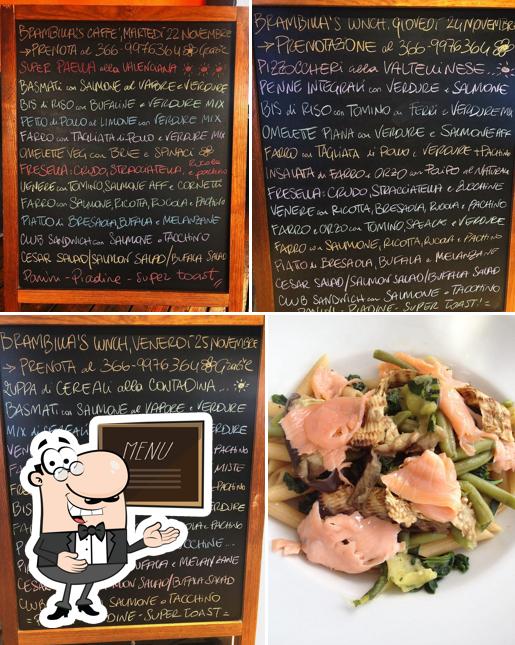 BRAMBILLA'S CAFFE', MARTEDÌ 22 NOVEMBRE
→ PRENOTA al 366-9976364 Grazie
SUPER PAELLA alla VALENCIANA
BASMATI con SALMONE al VAPORE e VERDURE
BIS di RISO con BUFALINE e VERDURE MIX
PETTO di POLLO al LIMONE con VERDURE MIX
FARRO con TAGLIATA di POLLO e VERDURE MIX
OMELETTE VEG con BRIE e SPINACI
FRESELLA: CRUDO, STRACCIATELLA, RUCOLA e PACHINO
VENERE con TOMINO, SALMONE AFF e CORNETTI
FARRO con SALMONE, RICOTTA, RUCOLA e PACHINO
PIATTO di BRESAOLA, BUFALA e MELANZANE
CLUB SANDWICH con SALMONE o TACCHINO
CESAR SALAD/SALMON SALAD/BUFALA SALAD
Panini - Piadine - Super Toast
BRAMBILLA'S LUNCH, GIOVEDÌ 24 NOVEMBRE
→ PRENOTAZIONE al 366-9976364
PIZZOCCHERI alla VALTELLINESE...
PENNE INTEGRALI con VERDURE e SALMONE
BIS di RISO con TOMINO ai FERRI e VERDURE MIX
OMELETTE PIANA con VERDURE e SALMONE AFF
FARRO con TAGLIATA di POLLO e VERDURE + PACHINO
INSALATA di FARRO e ORZO con POLIPO al NATURALE
FRESELLA: CRUDO, STRACCIATELLA e ZUCCHINE
VENERE con RICOTTA, BRESAOLA, RUCOLA e PACHINO
FARRO e ORZO con TOMINO, SPECK e VERDURE
FARRO con SALMONE, RICOTTA, RUCOLA e PACHINO
PIATTO di BRESAOLA, BUFALA e MELANZANE
CESAR SALAD/SALMON SALAD/BUFALA SALAD
CLUB SANDWICH con SALMONE o TACCHINO
PANINI - PIADINE - SUPER TOAST! =
BRAMBILLA'S LUNCH, VENERDÌ 25 NOVEMBRE
→ PRENOTA al 366-9976364 Grazie
ZUPPA di CEREALI alla CONTADINA...
BASMATI con SALMONE al VAPORE e VERDURE
MIX di CEREALI VERDURE
MENU
PACHINO
MISTE
BIS
e PACHINO
ZUCCHINE...
BUFALA e MELANZANE
CESAR SALMON SALAD/BUFALA SALAD
CLUB SALMONE o TACCHINO
PIADINE - SUPER TOAST =